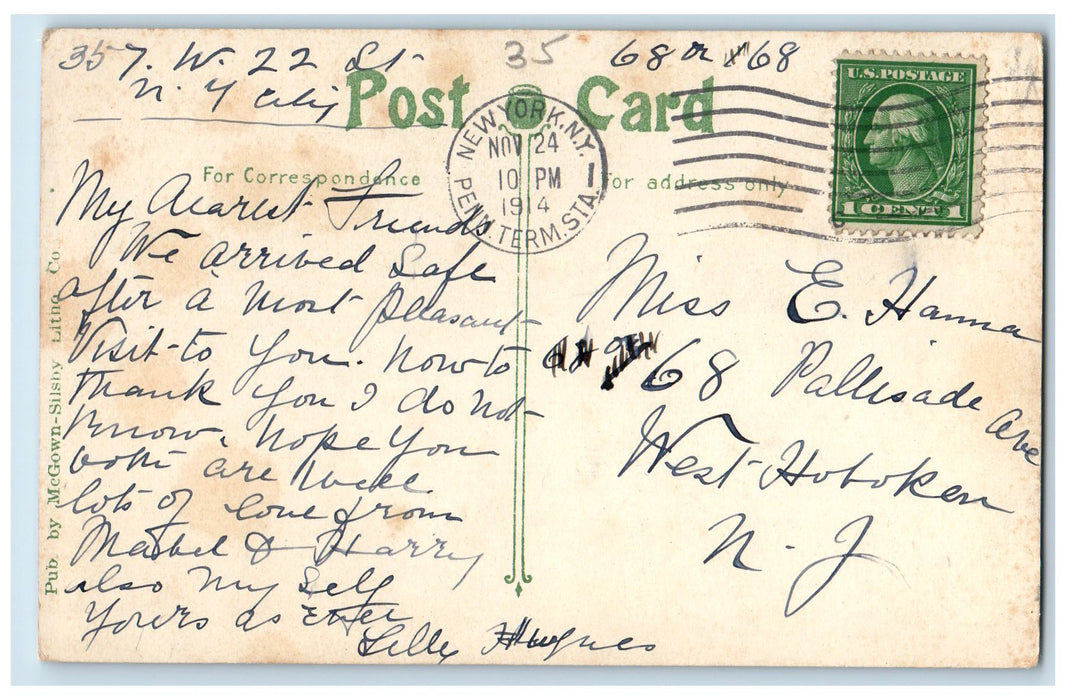 357. W. 22 St
N. Y City
35
68 or 168
Post Card
NEW YORK, N.Y.
NOV 24
10 PM
1914
PENN. TERM. STA.
1
U.S. POSTAGE
1 CENT 1
For Correspondence
For address only
My dearest Friends
We arrived Safe
after a most pleasant
Visit to you. how to
thank you I do not
know. hope you
both are well.
lots of love from
Mabel & Harry
also my self
yours as Ever
Lilly Hughes
Miss E. Hanna
68 Pallisade Ave
West Hoboken
N. J
Pub. by McGown-Silsby Litho Co